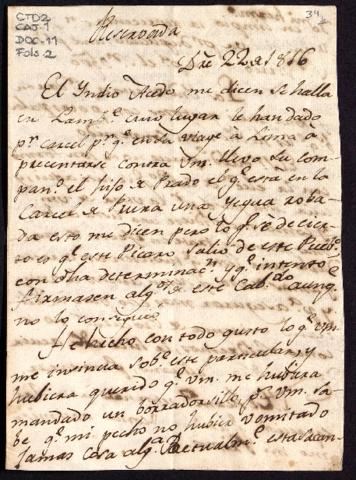 CTD2
CAJ-1
DOC-11
Fols-2
34
Reservada
Dre 22 de 1816
El Yndio Acedo me dicen se halla
en Lambe. cuio lugar le han dado
pr. Carcel pr. qe. en la viage a Lima a
presentarse contra Vm. llevo su com
pane. el hijo de Prado el qe. esta en la
Carcel de Piura una Yegua roba-
da esto me dicen pero lo qe. se de cier-
to es qe. este Picaro salio de este Pueb.
con dha determinac. y qe. intentó
firmasen algs. de este Cabdo. aunqe.
no lo consiguio
He hecho con todo gusto lo qe. Vm.
me insinua sobe. este particular, y
hubiera querido qe. Vm. me hubiera
mandado un borradorsillo, ps. Vm. sa-
be qe. mi pecho no hubiera vomitado
jamas cosa alga.